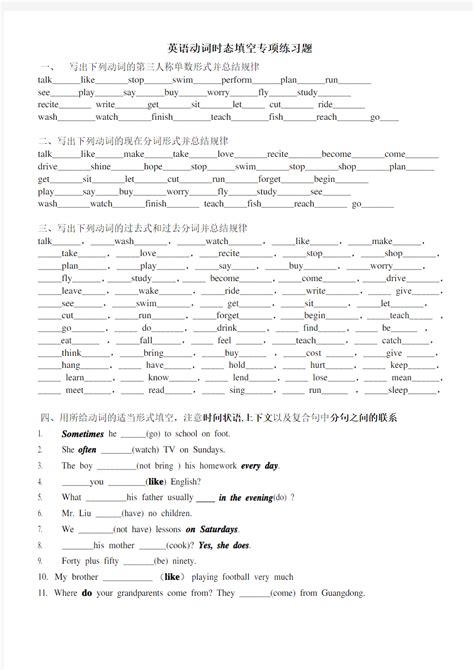 英语动词时态填空专项练习题
一、 写出下列动词的第三人称单数形式并总结规律
talk______like_______stop______swim______perform______plan______run_______
see______play______say______buy______worry______fly______study_______
recite_______ write______get______sit______let____ cut_______ ride_______
wash_______watch______finish______teach______fish______reach______go____
二、写出下列动词的现在分词形式并总结规律
talk______like______make______take______love_______recite_______become______come_______
drive_______shine______hope______stop______swim______stop______shop______plan_______
get______sit______let______cut______run______forget______begin_______
play______say______buy______worry______fly______study______see______
wash______watch______finish_______ teach______fish______reach_______ go_______
三、写出下列动词的过去式和过去分词并总结规律
talk______，_____wash_______，______watch______，_____like______，_____make______，
_____take_____，_____love_______，____recite_____，_____stop_____，_____shop_______，
_____plan______，_____play______，____say_____，_____buy______，_____worry______，
_____fly______，_____study_____，____ become_____，_____come______，_____drive_____，
_____leave_____，_____wake______，_____ride______，_____write_______，_____ give_____，
_____see______，_____swim______，____ get______，_____sit______，_____let______，
_____cut______，_____run______，_____forget______，_____begin______，_____teach_____，
_____go______，____ do______，_____drink______，____ find______，____ be_____，
_____eat______，_____fall______，____ feel______，_____teach______，____ catch______，
_____think______，_____bring______，_____buy______，____cost ______，____give ______，
_____hang______，____ have______，____ hold______，____ hurt______，____ keep______，
____ learn______，____ know______，____ lend______，____ lose______，____ mean______，
____ meet______，____ read______，____ sing______，____ run______，____ sleep______，
四、用所给动词的适当形式填空，注意时间状语,上下文以及复合句中分句之间的联系
1. Sometimes he ______(go) to school on foot.
2. She often _______(watch) TV on Sundays.
3. The boy ________(not bring ) his homework every day.
4. ______you ________(like) English?
5. What _________his father usually ____ in the evening(do) ?
6. Mr. Liu ______(have) no children.
7. We ________(not have) lessons on Saturdays.
8. _______his mother ______(cook)? Yes, she does.
9. Forty plus fifty _______(be) ninety.
10. My brother ___________ （like） playing football very much
11. Where do your grandparents come from? They _______(come) from Guangdong.